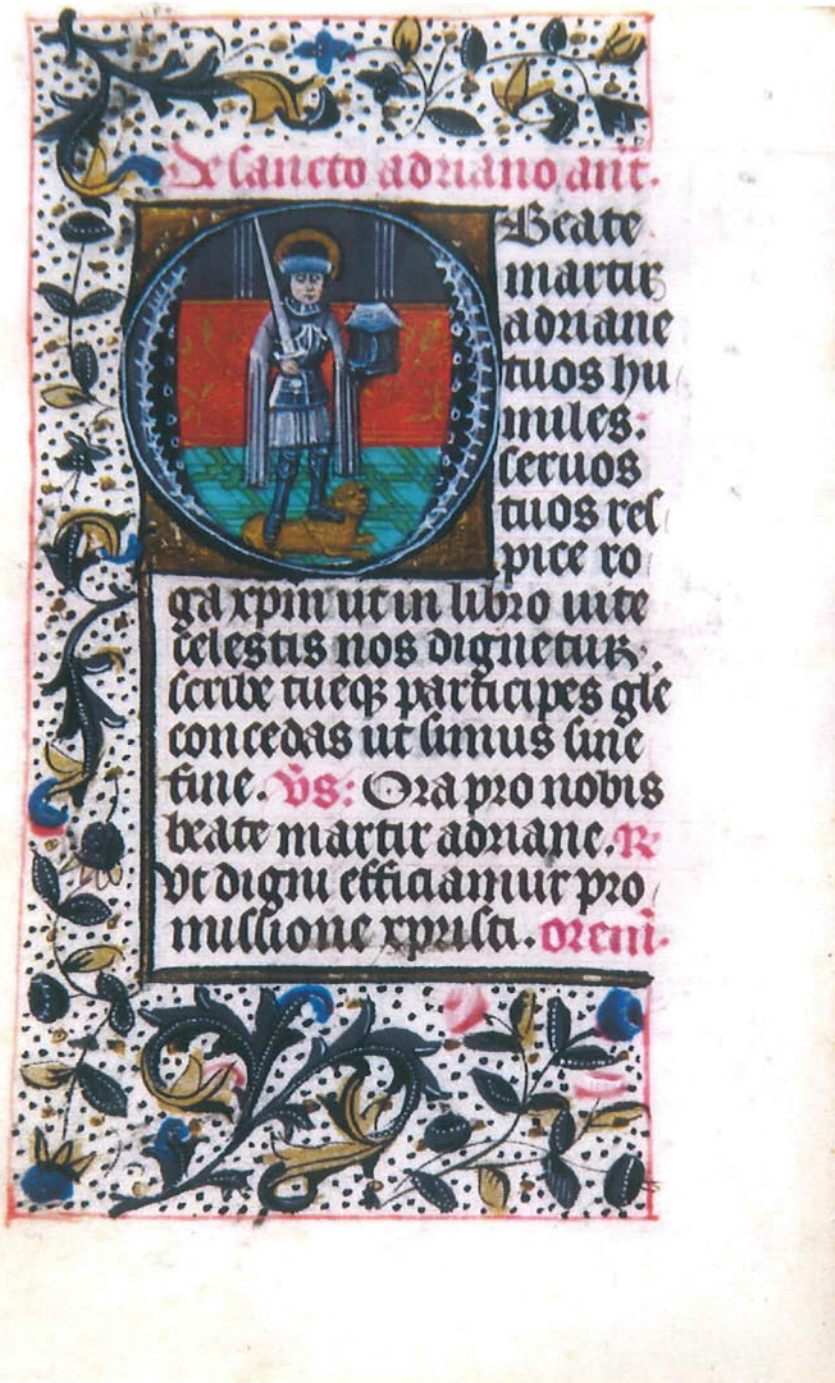 De sancto adriano añt.
Beate
martir
adriane
tuos hu
miles:
seruos
tuos res
pice ro
ga xpm ut in libro uite
celestis nos dignetur
scribe tueqȝ participes gl̄e
concedas ut simus sine
fine. v̄s: Ora pro nobis
beate martir adriane. R
Vt digni efficiamur pro
missione xpristi. orem̄.